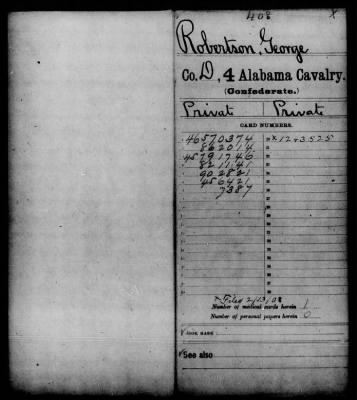 408 x
Robertson, George
Co. D, 4 Alabama Cavalry.
(Confederate.)
Private Private
CARD NUMBERS.
46570374 x1243525
862014
45791746
821141
902821
456421
7387
Filed 2/13/08
Number of medical cards herein 1
Number of personal papers herein 0
BOOK MARK:
See also